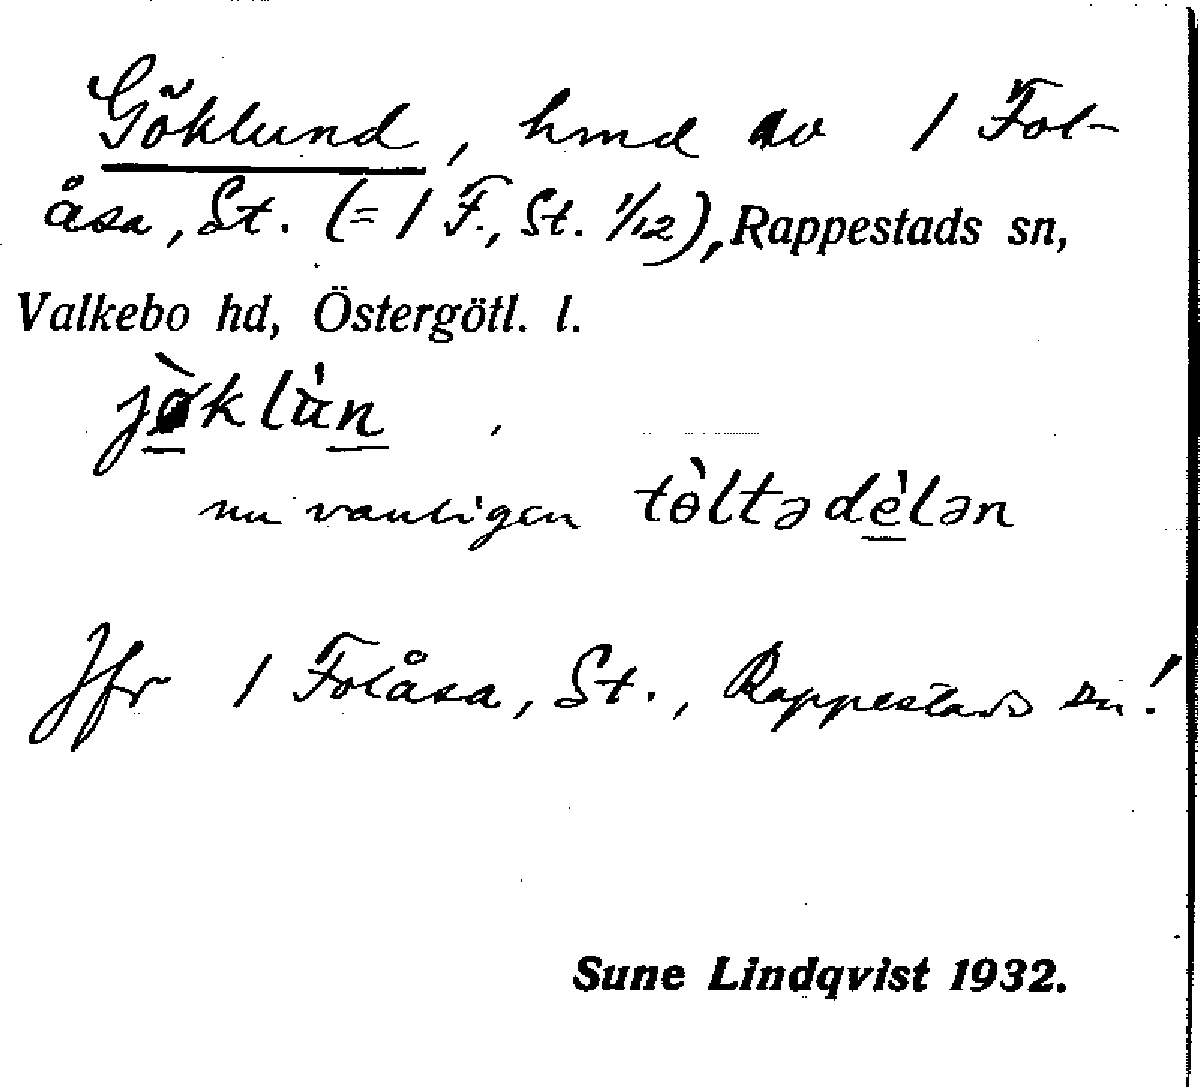 Göklund, hmd av 1 Fol-
åsa, St. (= 1 F., St. 1/12), Rappestads sn,
Valkebo hd, Östergötl. l.
jø̀klùn
nu vanligen tɵ̀ltədèlən
Jfr 1 Folåsa, St., Rappestads sn!
Sune Lindqvist 1932.